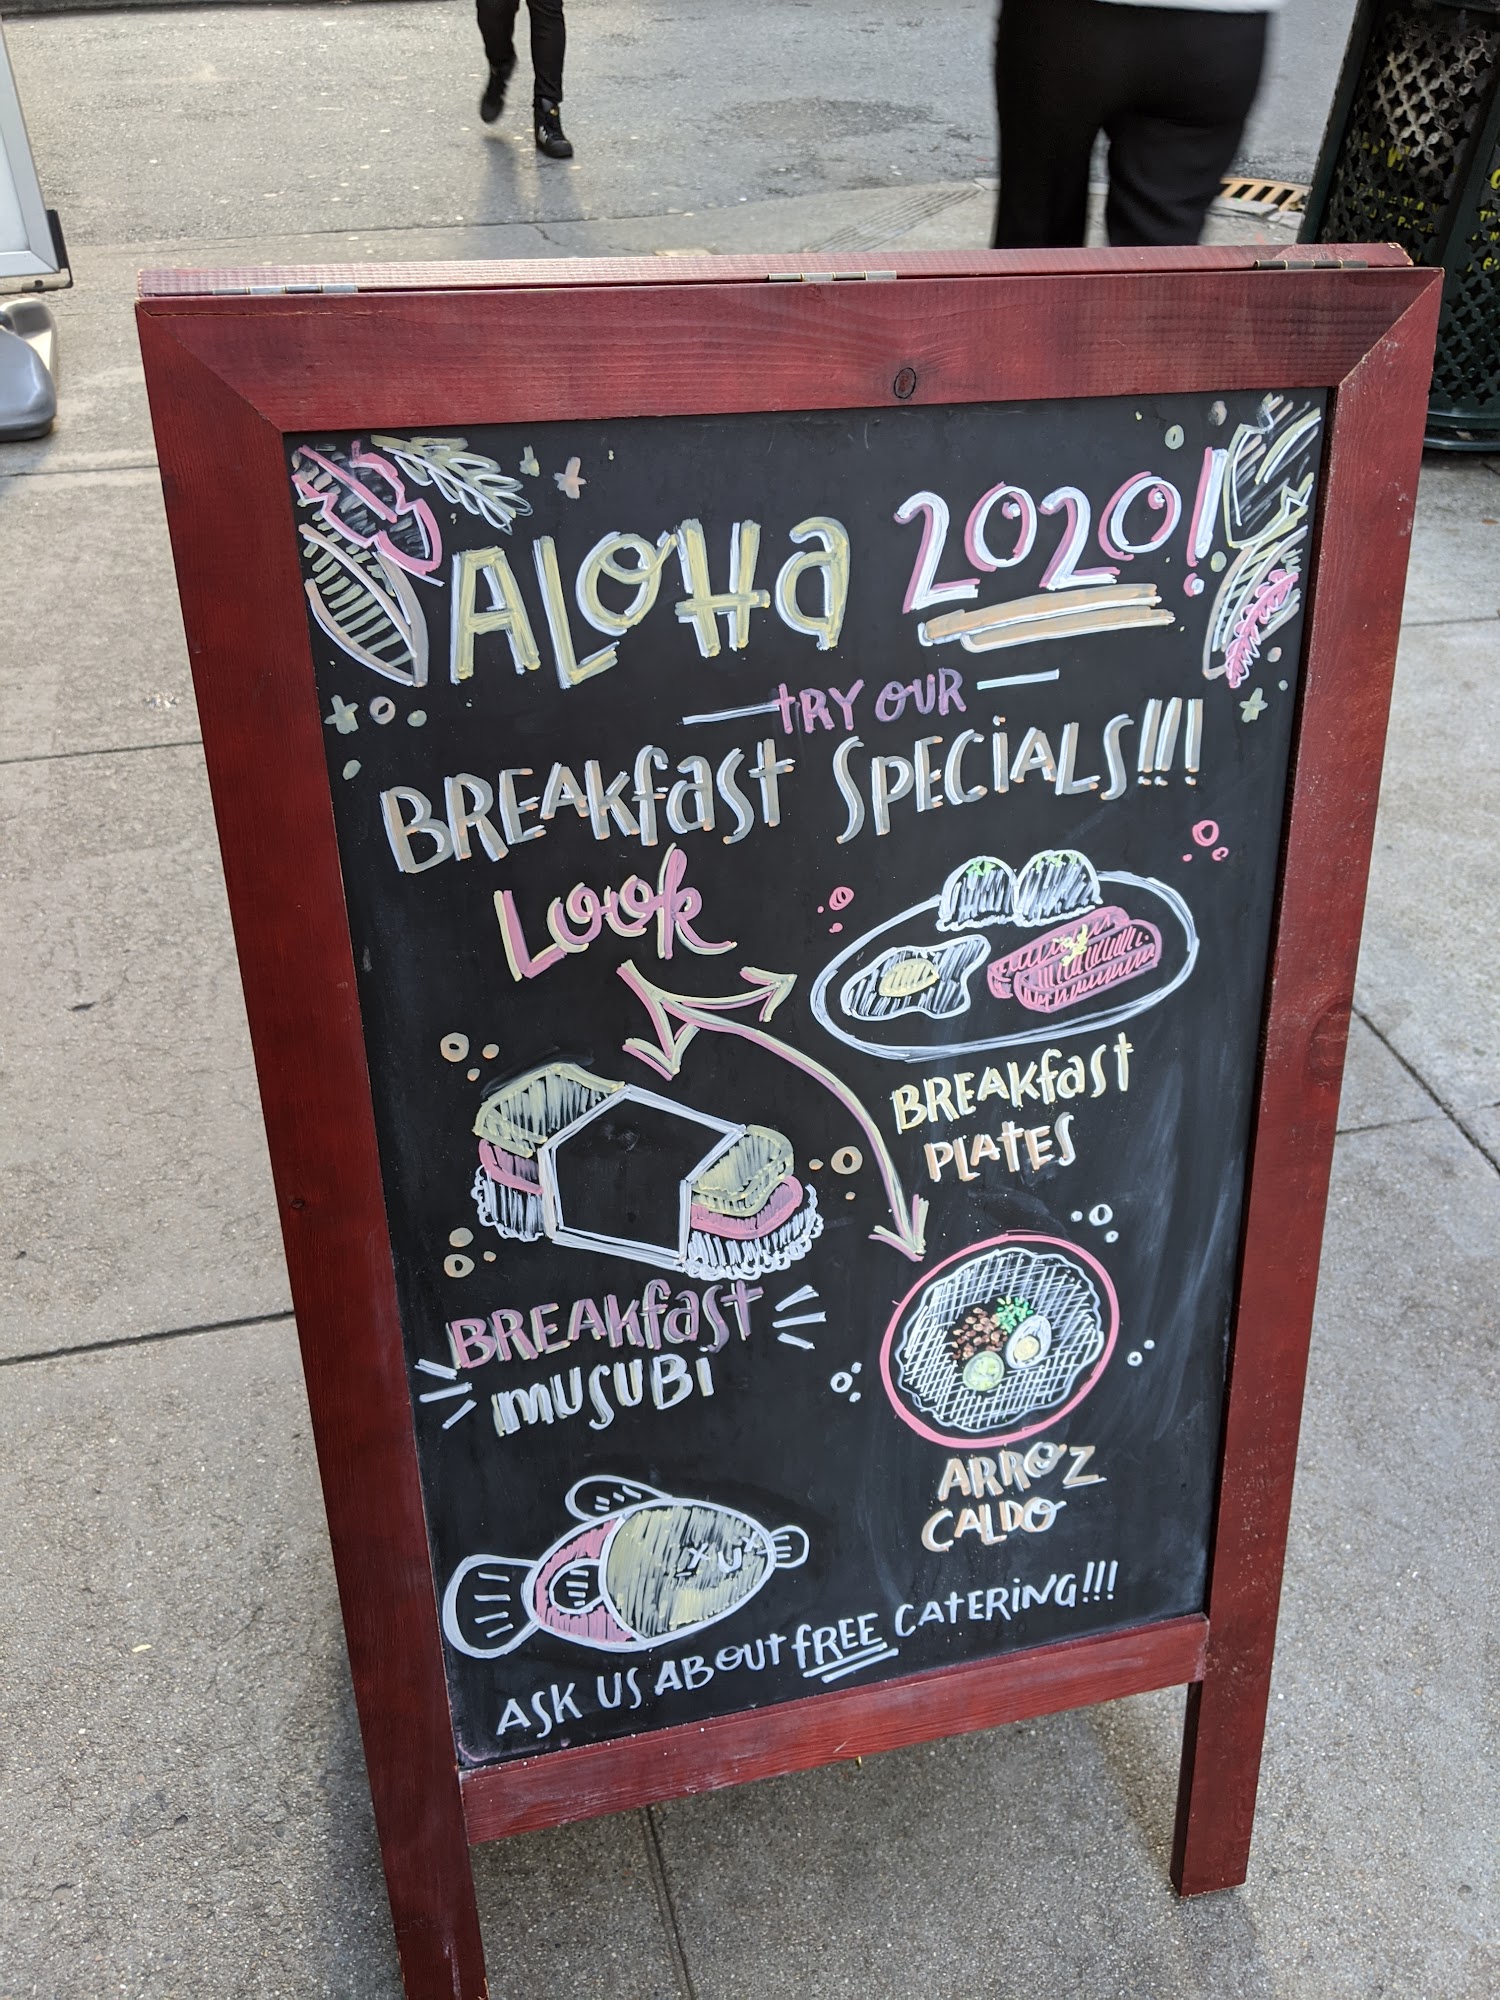 ALOHA 2020!
TRY OUR
BREAKfast SPECiALS!!!
Look
BREAKfast
PLATES
BREAKfast
MUSUBi
ARROZ
CALDO
ASK US ABOUT fREE CATERiNG!!!